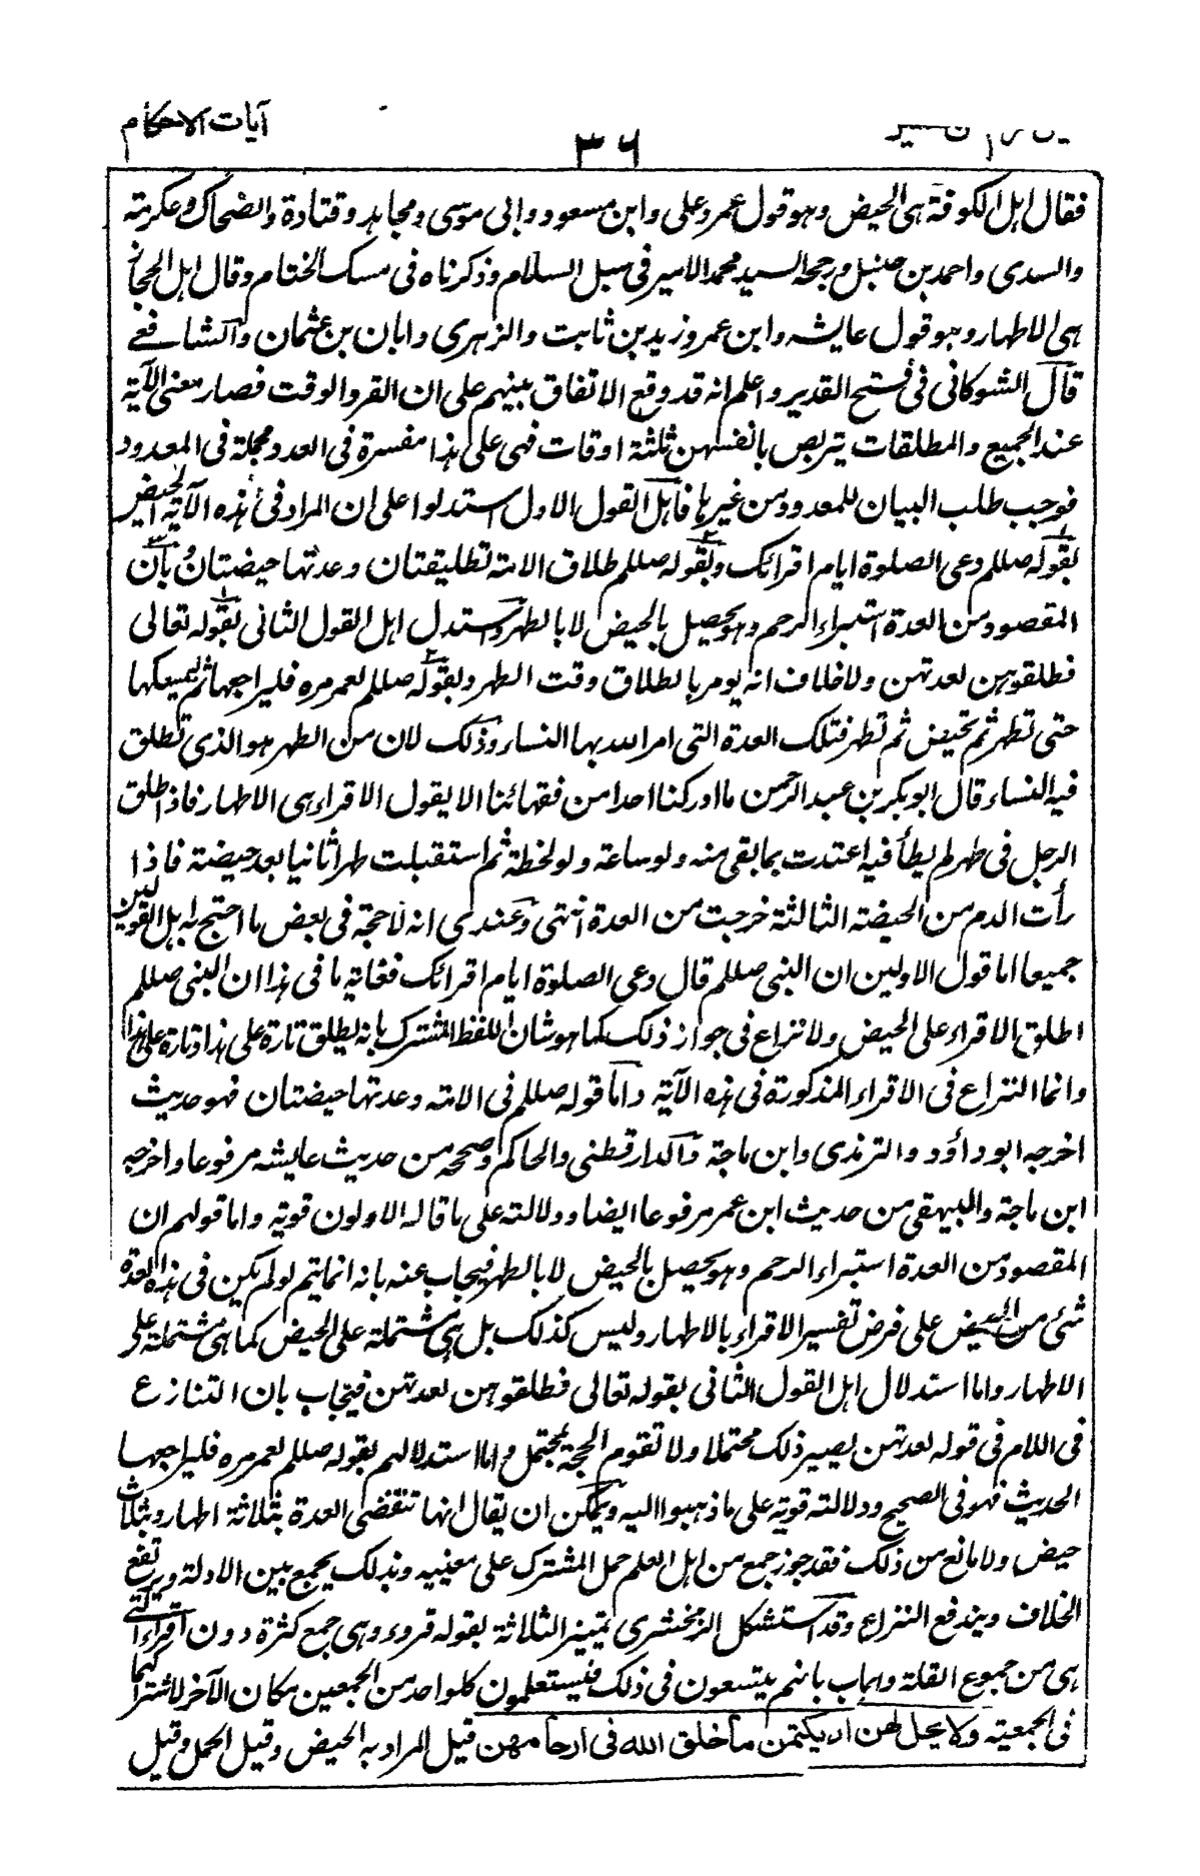 آيات الاحكام
٣٦
فقال اهل الكوفة هى الحيض وهو قول عمر وعلى وابن مسعود وابى موسى ومجاهد وقتادة والضحاك وعكرمة
والسدى واحمد بن حنبل ورجحه السيد محمد الامير فى سبل السلام وذكرناه فى مسك الختام وقال اهل الحجاز
هى الاطهار وهو قول عايشه وابن عمر وزيد بن ثابت والزهرى وابان بن عثمان والشافعے
قال الشوكانى فى فتح القدير واعلم انه قد وقع الاتفاق بينهم على ان القرء الوقت فصار معنى الآية
عند الجميع والمطلقات يتربص بانفسهن ثلثة اوقات فهى على هذا مفسرة فى العدد مجملة فى المعدود
فوجب طلب البيان للمعدود من غيرها فاهل القول الاول استدلوا على ان المراد فى هذه الآية الحيض
بقوله صللم دعى الصلوة ايام اقرائك وبقوله صللم طلاق الامة تطليقتان وعدتها حيضتان وبان
المقصود من العدة استبراء الرحم وهو يحصل بالحيض لا بالطهر واستدل اهل القول الثانى بقوله تعالى
فطلقوهن لعدتهن ولا خلاف انه يومر بالطلاق وقت الطهر وبقوله صللم لعمر مره فليراجعها ثم ليمسكها
حتى تطهر ثم تحيض ثم تطهر فتلك العدة التى امر الله بها النساء وذلك لان من الطهر هو الذى تطلق
فيه النساء قال ابو بكر بن عبد الرحمن ما ادركنا احدا من فقهائنا الا يقول الاقراء هى الاطهار فاذا طلق
الرجل فى طهر لم يطأ فيه اعتدت بما بقى منه ولو ساعة ولو لحظة ثم استقبلت طهرا ثانيا بعد حيضة فاذا
رأت الدم من الحيضة الثالثة خرجت من العدة انتهى وعندى انه لا حجة فى بعض ما احتج به اهل القولين
جميعا اما قول الاولين ان النبى صللم قال دعى الصلوة ايام اقرائك فغاية ما فى هذا ان النبى صللم
اطلق الاقراء على الحيض ولا نزاع فى جواز ذلك كما هو شان اللفظ المشترك بانه يطلق تارة على هذا وتارة على هذا
وانما النزاع فى الاقراء المذكورة فى هذه الآية واما قوله صللم فى الامة وعدتها حيضتان فهو حديث
اخرجه ابو داؤد والترمذى وابن ماجة والدارقطنى والحاكم وصححه من حديث عايشه مرفوعا واخرجه
ابن ماجة والبيهقى من حديث ابن عمر مرفوعا ايضا ودلالته على ما قاله الاولون قوية واما قولهم ان
المقصود من العدة استبراء الرحم وهو يحصل بالحيض لا بالطهر فيجاب عنه بانه انما يتم لو لم يكن فى هذه العدة
شئ من الحيض على فرض تفسير الاقراء بالاطهار وليس كذلك بل هى مشتملة على الحيض كما هى مشتملة على
الاطهار واما استدلال اهل القول الثانى بقوله تعالى فطلقوهن لعدتهن فيجاب بان التنازع
فى اللام فى قوله لعدتهن يصير ذلك محتملا ولا تقوم الحجة بمحتمل واما استدلالهم بقوله صللم لعمر مره فليراجعها
الحديث فهو فى الصحيح ودلالته قوية على ما ذهبوا اليه ويمكن ان يقال انها تنقضى العدة بثلاثة اطهار وبثلاث
حيض ولا مانع من ذلك فقد جوز جمع من اهل العلم حمل المشترك على معنييه وبذلك يجمع بين الادلة ويرتفع
الخلاف ويندفع النزاع وقد استشكل الزمخشرى تمييز الثلاثة بقوله قروء وهى جمع كثرة دون اقراء التى
هى من جموع القلة واجاب بانهم يتسعون فى ذلك فيستعلمون كلواحد من الجمعين مكان الآخر لاشتراكهما
فى الجمعية ولا يحل لهن ان يكتمن ما خلق الله فى ارحامهن قيل المراد به الحيض وقيل الحمل وقيل